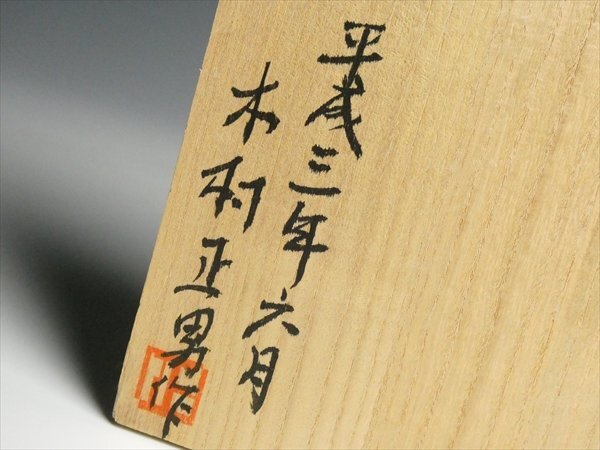 平成三年六月
木村正男作